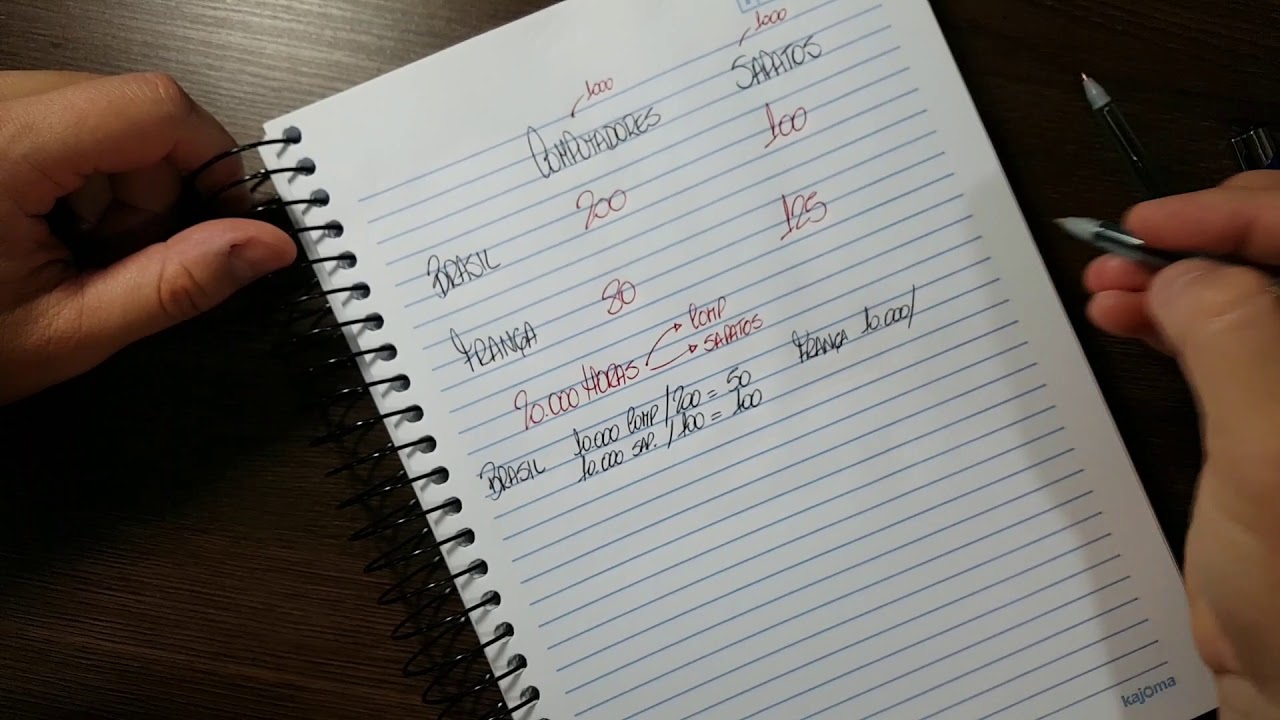 1000
SAPATOS
1000
COMPUTADORES
100
200
125
BRASIL
80
FRANÇA
20.000 HORAS
COMP
SAPATOS
FRANÇA 10.000/
BRASIL
10.000 COMP / 200 = 50
10.000 SAP. / 100 = 100
kajoma